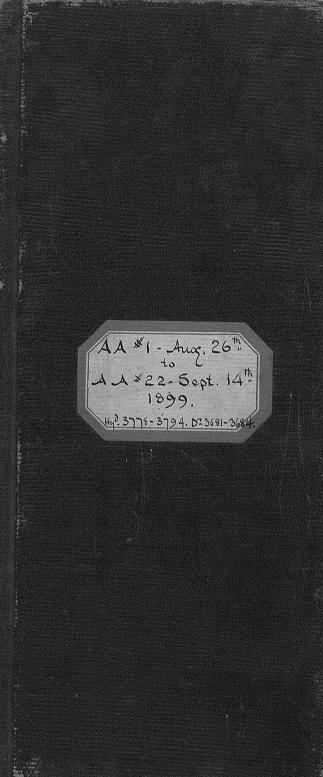 AA #1 - Aug. 26th
to
AA #22 - Sept. 14th
1899.
Hyd. 3778-3794. Dr. 3681-3684.